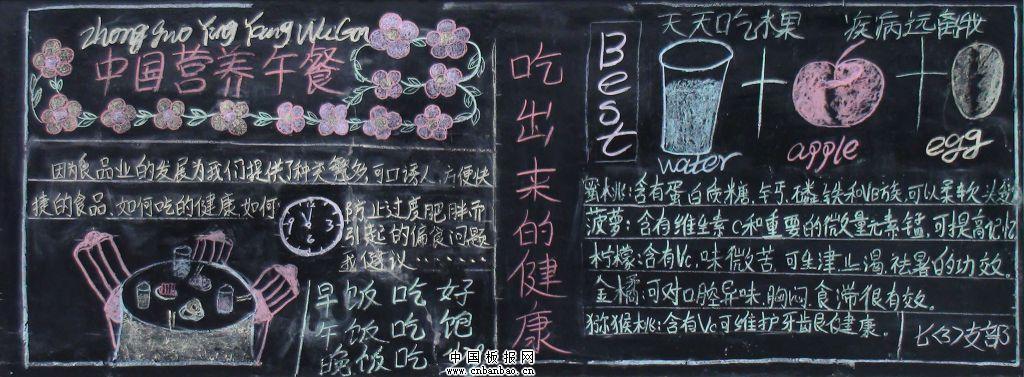 zhong guo Ying Yang WuCan
中国营养午餐
因为食品业的发展为我们提供了种类繁多可口诱人、方便快
捷的食品、如何吃的健康、如何
防止过度肥胖而
引起的偏食问题
我建议……
早饭吃好
午饭吃饱
晚饭吃
吃出来的健康
Best
天天吃水果 疾病远离我
water
apple
egg
蜜桃:含有蛋白质、糖、钙、磷、铁和VB族,可以柔软头发
菠萝:含有维生素C和重要的微量元素锰,可提高记忆
柠檬:含有Vc,味微苦,可生津止渴,祛暑的功效。
金橘:可对口腔异味、胸闷、食滞很有效。
猕猴桃:含有Vc可维护牙龈健康。
七(3)支部
中国板报网
www.cnbanbao.cn